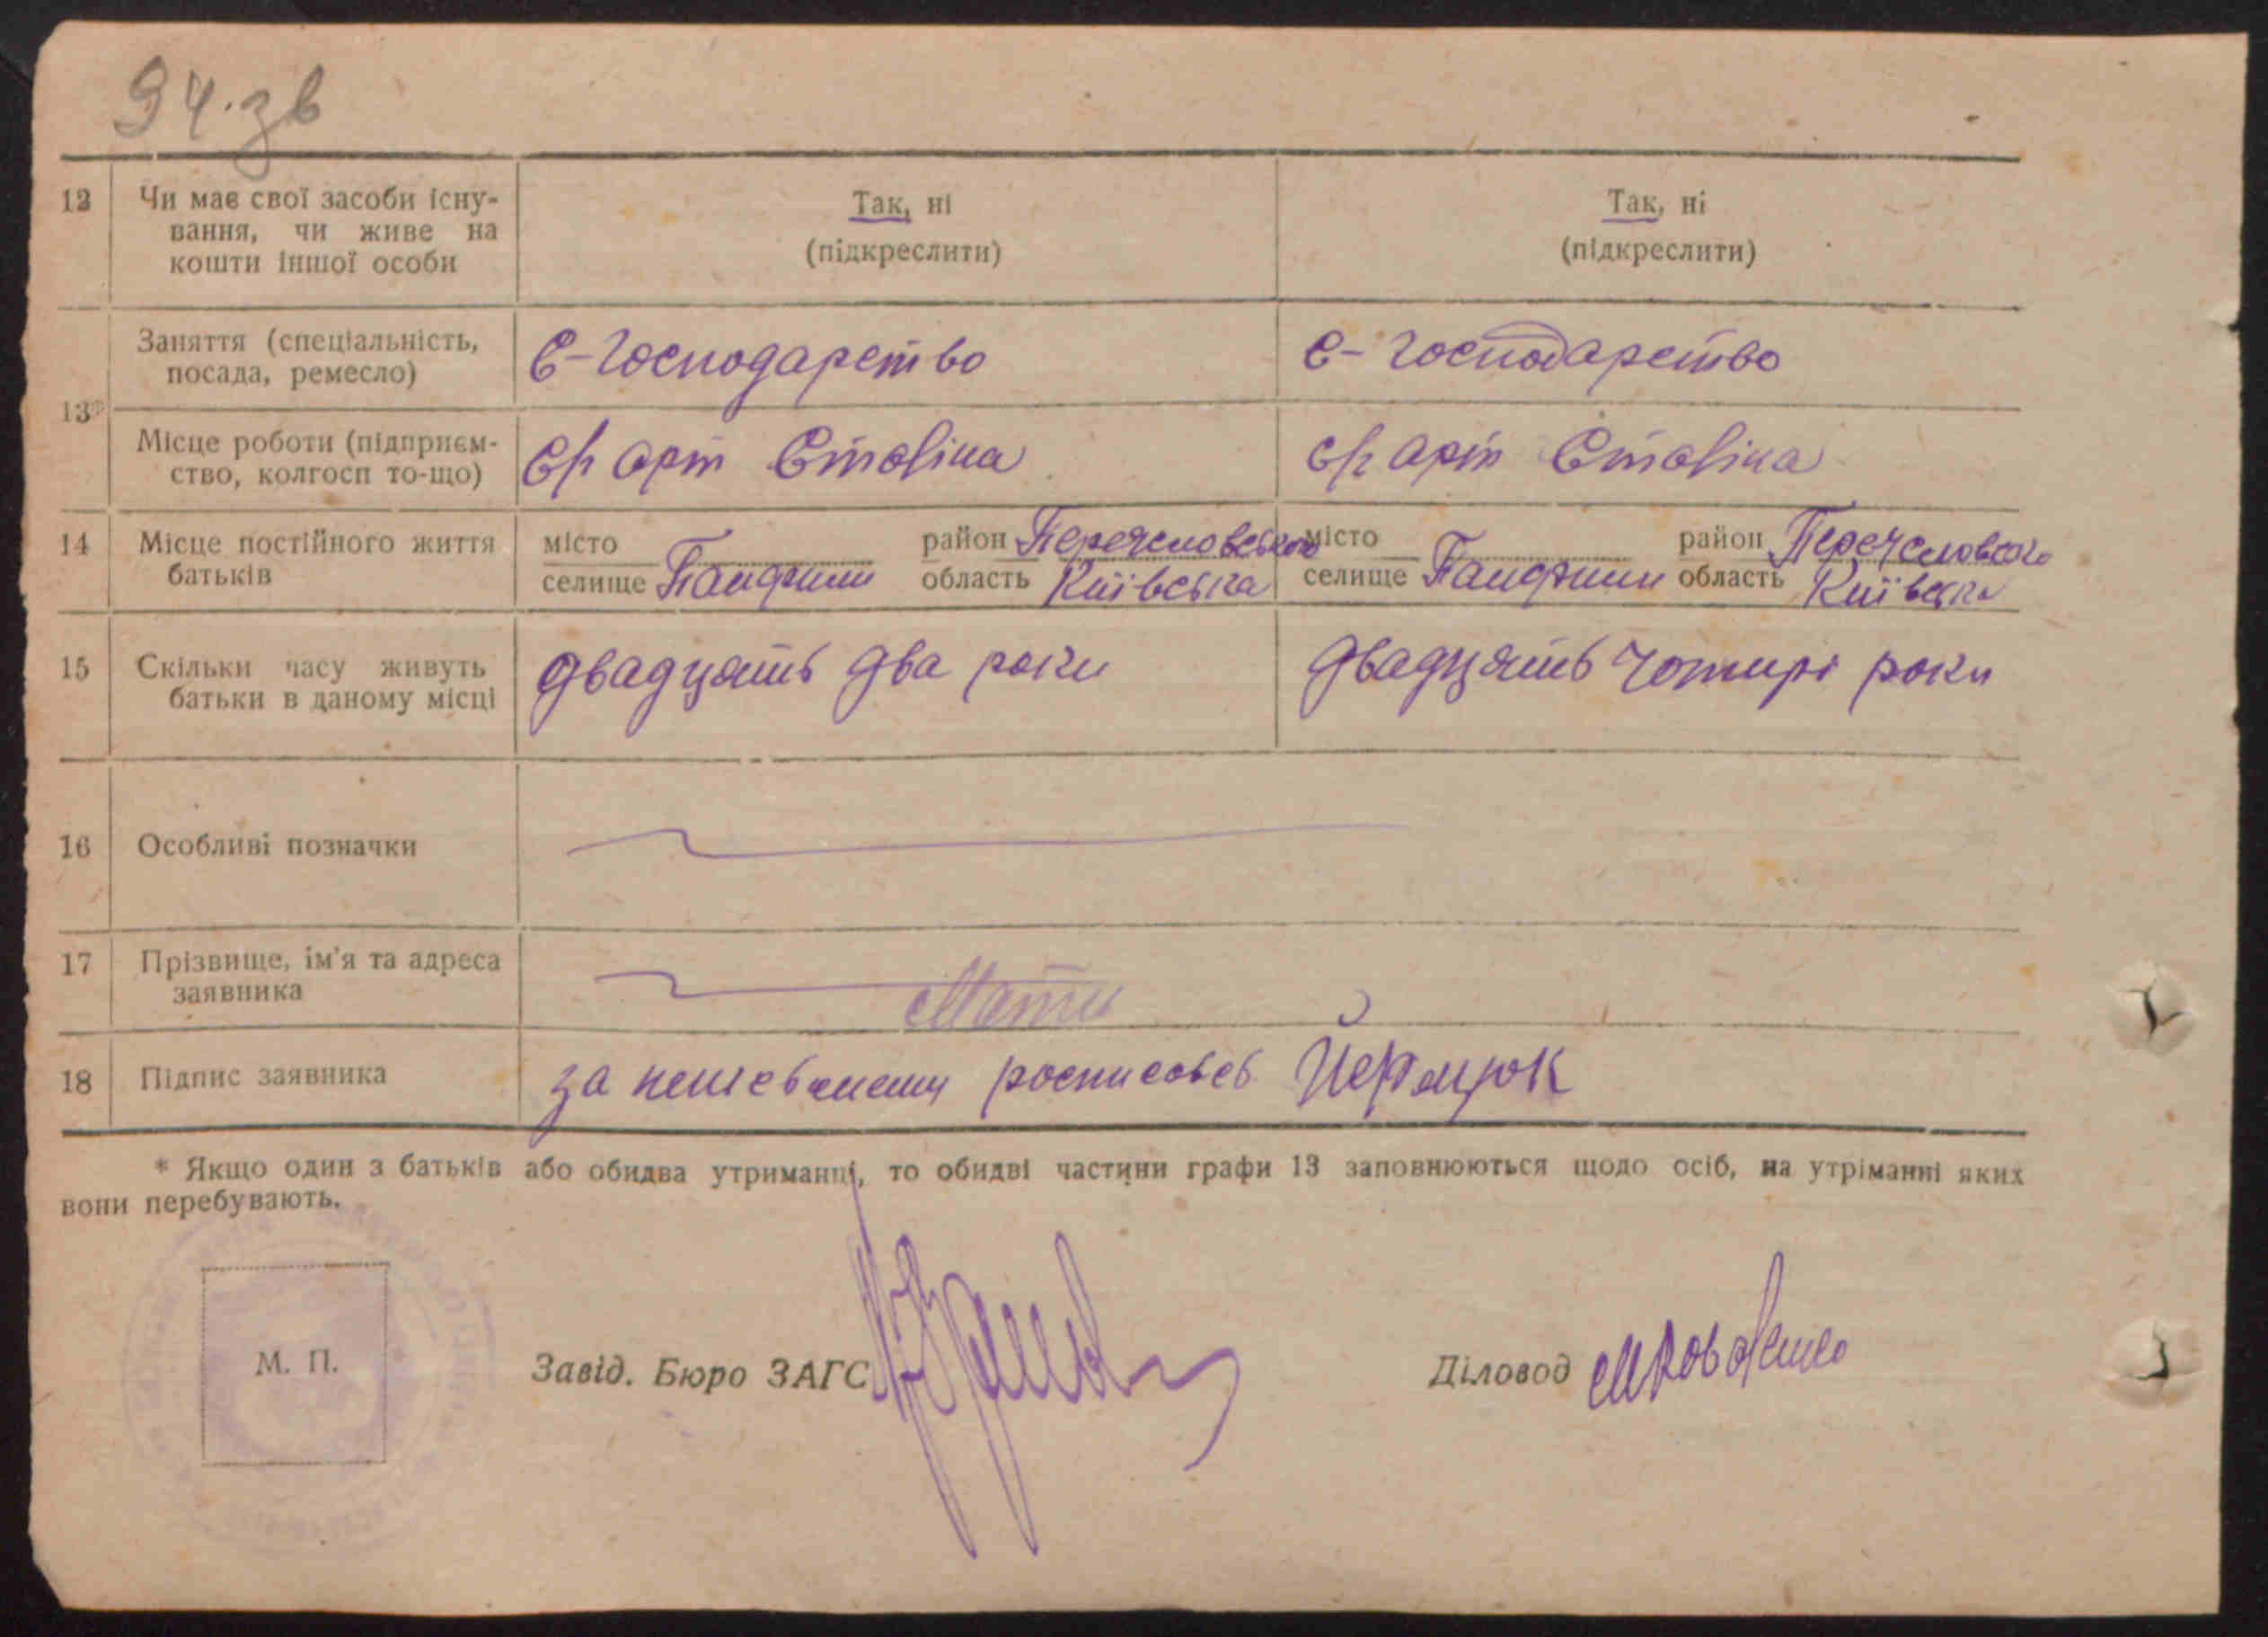 94.зв
12 Чи має свої засоби існу-
вання, чи живе на
кошти іншої особи
Так, ні
(підкреслити)
Так, ні
(підкреслити)
13*
Заняття (спеціальність,
посада, ремесло)
С-господарство
С-господарство
Місце роботи (підприєм-
ство, колгосп то-що)
С/г арт Сталіна
С/г арт Сталіна
14 Місце постійного життя
батьків
місто
селище Панфили
район
область Київська
місто
селище Панфили
район
область Київська
15 Скільки часу живуть
батьки в даному місці
двадцять два роки
двадцять чотирі роки
16 Особливі позначки
17 Прізвище, ім'я та адреса
заявника
Мати
18 Підпис заявника
за росписовсь
* Якщо один з батьків або обидва утриманці, то обидві частини графи 13 заповнюються щодо осіб, на утріманні яких
вони перебувають.
М. П.
Завід. Бюро ЗАГС
Діловод